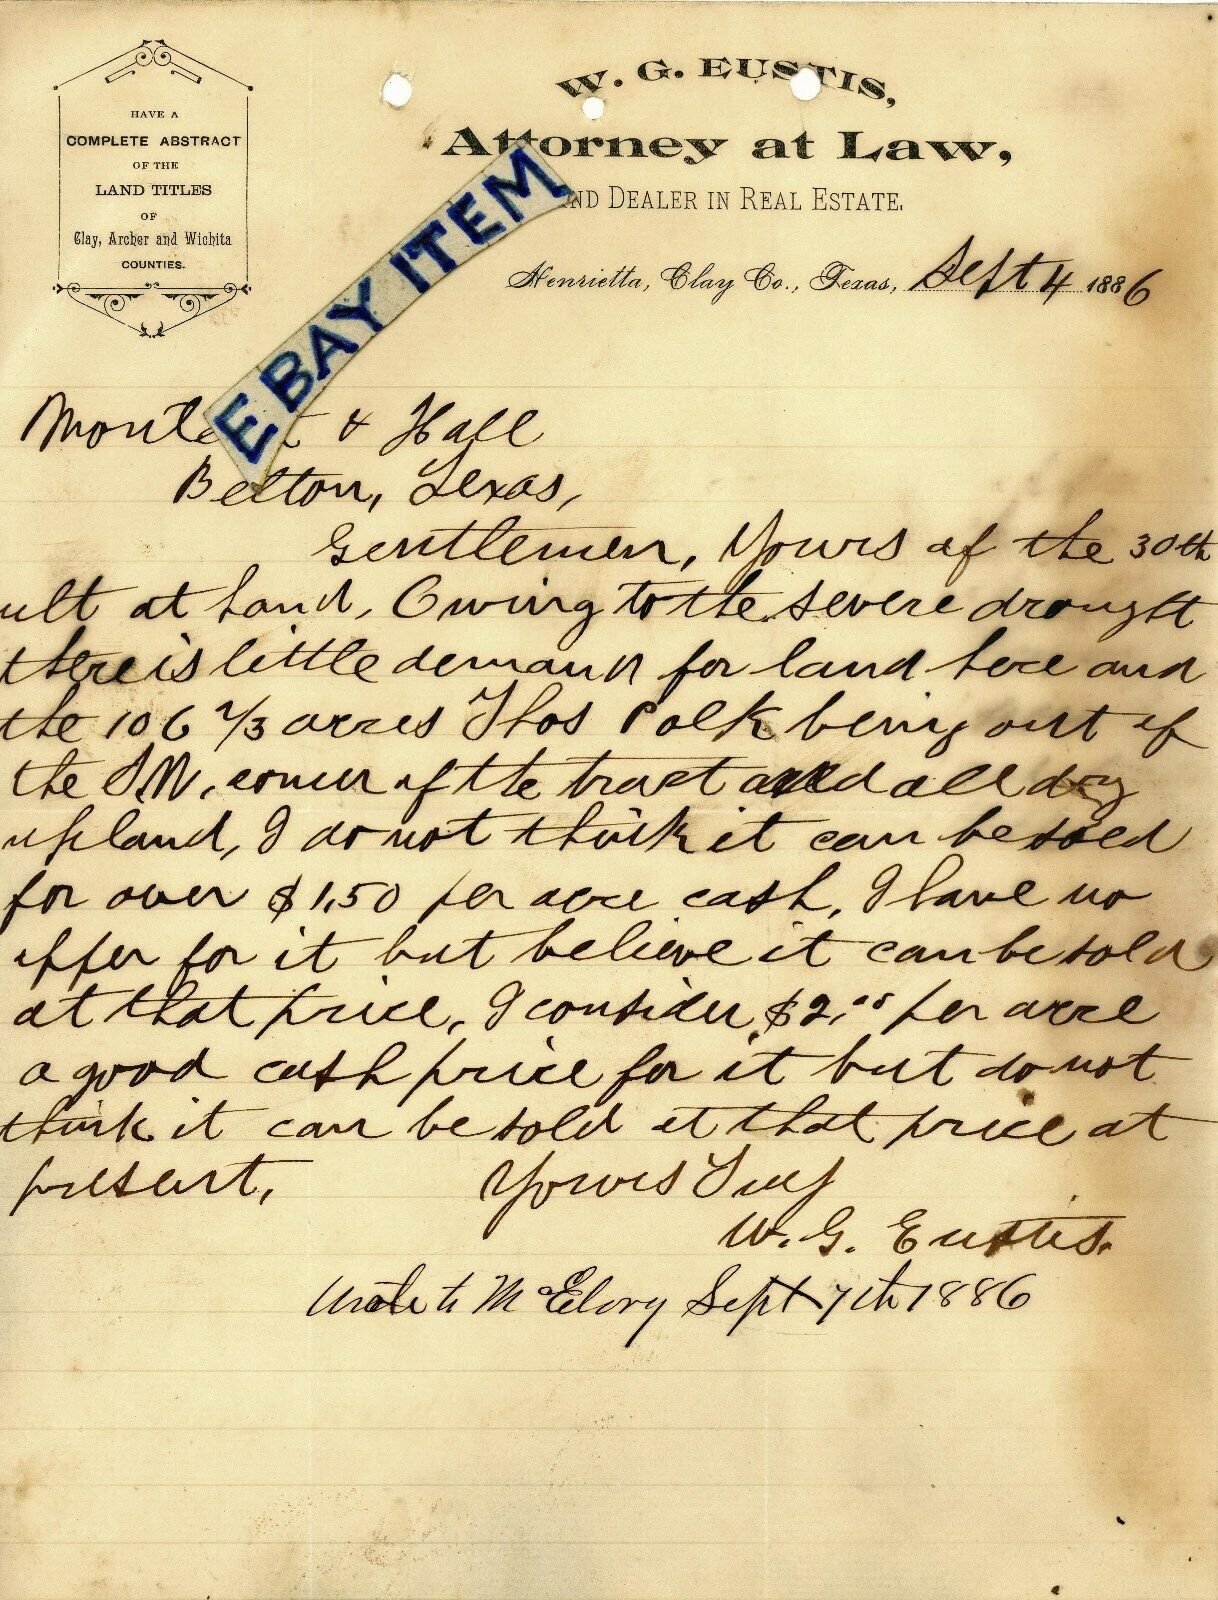 HAVE A
COMPLETE ABSTRACT
OF THE
LAND TITLES
OF
Clay, Archer and Wichita
COUNTIES.
W. G. EUSTIS,
Attorney at Law,
AND DEALER IN REAL ESTATE.
Henrietta, Clay Co., Texas, Sept 4 1886
EBAY ITEM
& Hall
Belton, Texas,
Gentlemen, Yours of the 30th
ult at hand, Owing to the severe drought
there is little demand for land here and
the 106 2/3 acres Thos Polk being out of
the S.W. corner of the tract and all dry
upland, I do not think it can be sold
for over $1.50 per acre cash, I have no
offer for it but believe it can be sold
at that price, I consider $2.00 per acre
a good cash price for it but do not
think it can be sold at that price at
present,
Yours Truly
W. G. Eustis.
Wrote to McElory Sept 7th 1886